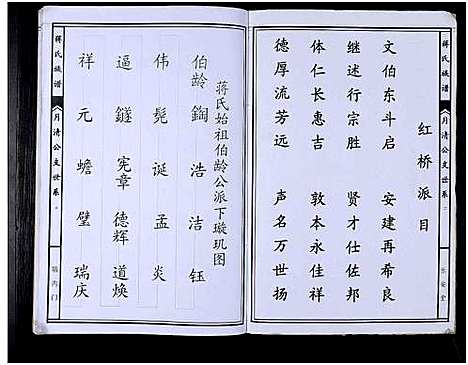 蒋氏族谱
月清公支世系 二
乐安堂
红桥派目
文伯东斗启 安建再希良
继述行宗胜 贤才仕佐邦
体仁长惠吉 敦本永佳祥
德厚流芳远 声名万世扬
蒋氏始祖伯龄公派下璇玑图
伯龄 浩 洁 钰
伟 诞 孟 炎
逼 鐩 宪章 德辉 道焕
祥 元 蟾 璧 瑞庆
蒋氏族谱
月清公支世系